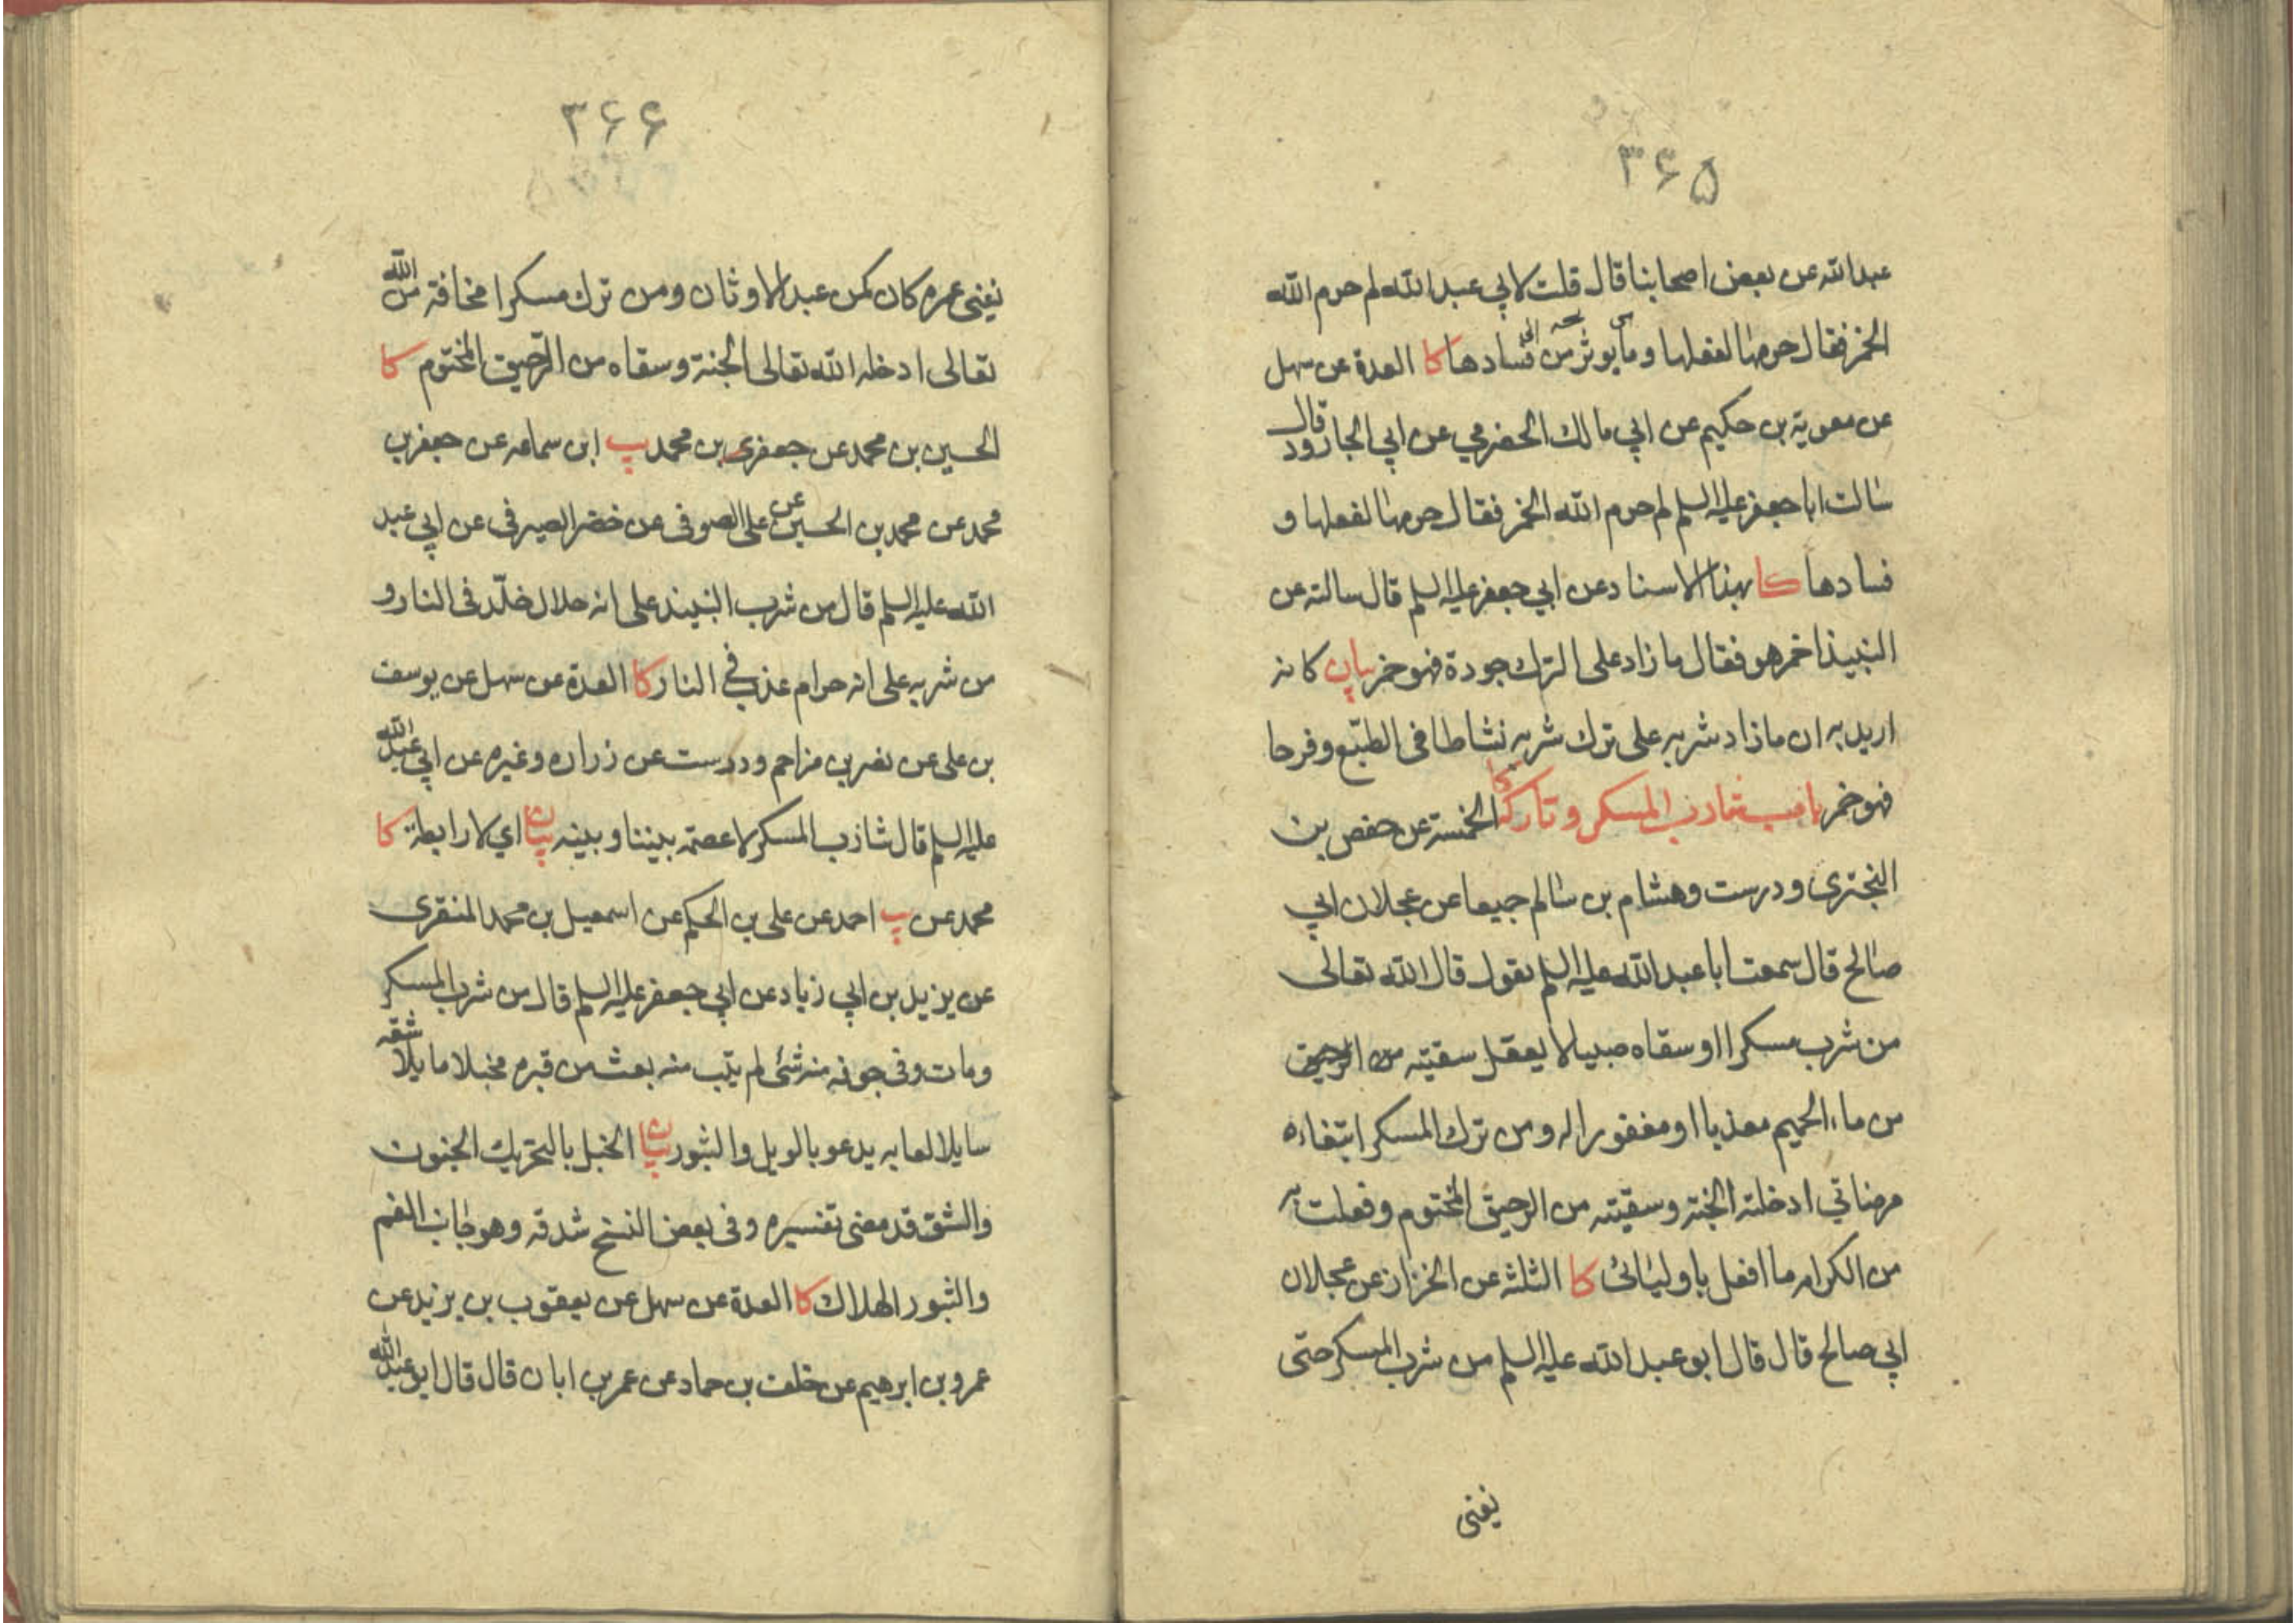 ۳۶۵
عبد الله عن بعض اصحابنا قال قلت لابي عبد الله لم حرم الله
الخمر فقال حرمها لفعلها وما يوثر من فسادها كا العدة عن سهل
عن معوية بن حكيم عن ابي مالك الحضرمي عن ابي الجارود قال
سالت ابا جعفر عليه السلم لم حرم الله الخمر فقال حرمها لفعلها و
فسادها كا بهذا الاسناد عن ابي جعفر عليه السلم قال سالته عن
النبيذ اخمر هو فقال ما زاد على الترك جودة فهو خمر بيان كانه
اريد به ان ما زاد شربه على ترك شربه نشاطا في الطبع وفرحا
فهو خمر باب شارب المسكر وتاركه كا الخمسة عن حفص بن
البختري ودرست وهشام بن سالم جميعا عن عجلان ابي
صالح قال سمعت ابا عبد الله عليه السلم يقول قال الله تعالى
من شرب مسكرا او سقاه صبيا لا يعقل سقيته من
من ماء الحميم معذبا او مغفورا له ومن ترك المسكر ابتغاء
مرضاتي ادخلته الجنة وسقيته من الرحيق المختوم وفعلت به
من الكرامه ما افعل باوليائى كا الثلثه عن الخزاز عن عجلان
ابي صالح قال قال ابو عبد الله عليه السلم من شرب المسكر حتى
يفنى
۳۶۶
يفنى عمره كان كمن عبد الاوثان ومن ترك مسكرا مخافة من الله
تعالى ادخله الله تعالى الجنة وسقاه من الرحيق المختوم كا
الحسين بن محمد عن جعفر بن محمد يب ابن سماعه عن جعفر بن
محمد عن محمد بن الحسين عن على الصوفى عن خضر الصيرفى عن ابي عبد
الله عليه السلم قال من شرب النبيذ على انه حلال خلّد فى النار و
من شربه على انه حرام عذب في النار كا العدة عن سهل عن يوسف
بن على عن نصر بن مزاحم ودرست عن زراره وغيره عن ابي عبد الله
عليه السلم قال شارب المسكر لا عصمة بيننا وبينه بيان اي لا رابطة كا
محمد عن يب احمد عن على بن الحكم عن اسمعيل بن محمد المنقرى
عن يزيد بن ابي زياد عن ابي جعفر عليه السلم قال من شرب المسكر
ومات وفى جوفه منه شئ لم يتب منه بعث من قبره مخبلا مايلا شقه
سايلا لعابه يدعو بالويل والثبور بيان الخبل بالتحريك الجنون
والشق قد مضى تفسيره وفى بعض النسخ شدقه وهو جانب الفم
والثبور الهلاك كا العدة عن سهل عن يعقوب بن يزيد عن
عمرو بن ابرهيم عن خلف بن حماد عن عمر بن ابان قال قال ابو عبد الله